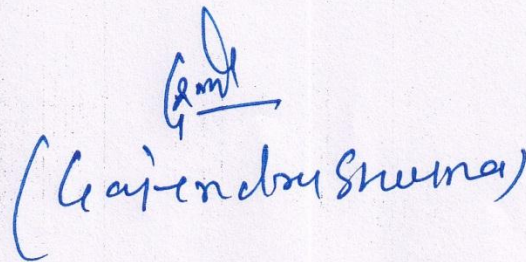 (Gajendra Sharma)